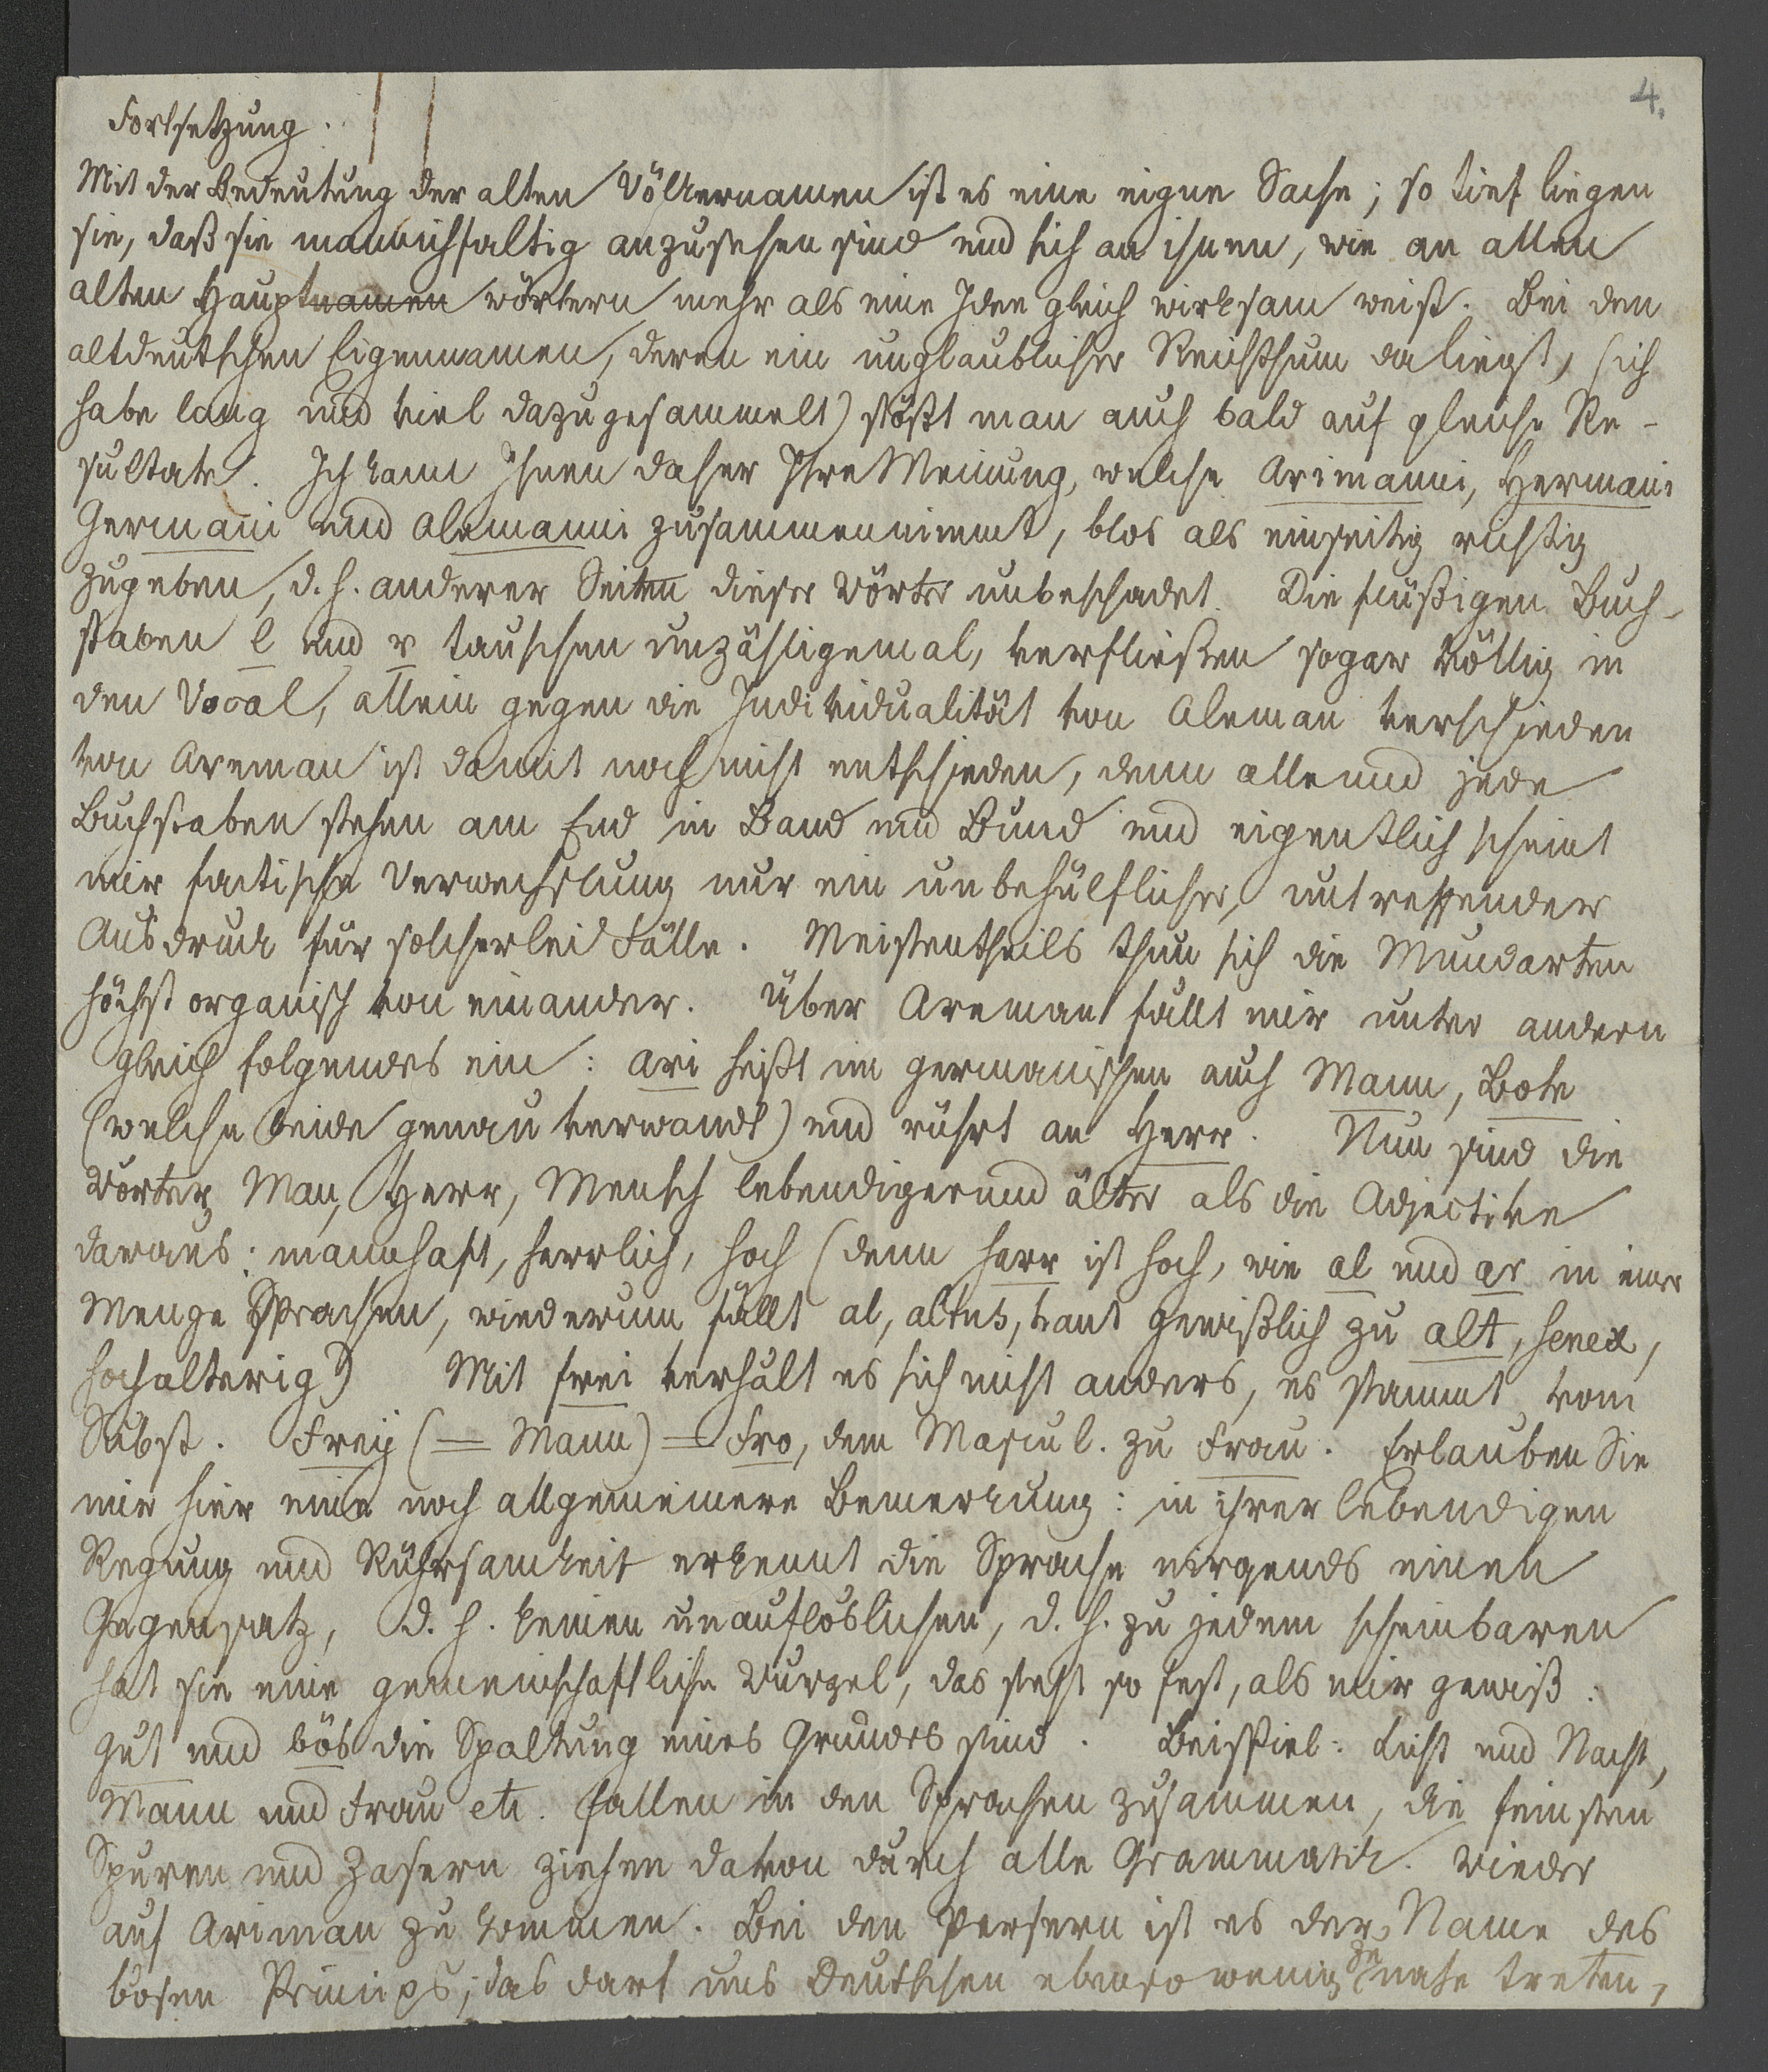 4.
Fortsetzung.
Mit der Bedeutung der alten Völkernamen ist es eine eigne Sache; so tief liegen
sie, daß sie mannichfaltig anzusehen sind und sich an ihnen, wie an allen
alten Hauptnamen wörtern mehr als eine Idee gleich wirksam weist. Bei den
altdeutschen Eigennamen, deren ein unglaublicher Reichthum da liegt, (ich
habe lang und viel dazu gesammelt) stößt man auch bald auf gleiche Re-
sultate. Ich kann Ihnen daher Ihre Meinung, welche Arimanni, Hermani
Germani und Alemanni zusammennimmt, blos als einseitig richtig
zugeben, d. h. anderer Seiten dieser Wörter unbeschadet. Die flüßigen Buch-
staben l und r tauschen unzähligemal, verfließen sogar völlig in
den Vocal, allein gegen die Individualität von Aleman verschieden
von Areman ist damit noch nicht entschieden, denn alle und jede
Buchstaben stehen am End in Band und Bund und eigentlich scheint
mir factische Verwechslung nur ein unbehülflicher, untreffender
Ausdruck für solcherlei Fälle. Meistentheils thun sich die Mundarten
höchst organisch von einander. Über Areman fällt mir unter andern
gleich folgendes ein: ari heißt im germanischen auch Mann, Bote
(welche beide genau verwandt) und rührt an Herr. Nun sind die
Wörter, Man, Herr, Mensch lebendiger und älter als die Adjective
daraus: mannhaft, herrlich, hoch (denn harr ist hoch, wie al und ar in einer
Menge Sprachen, wiederum fällt al, altus, haut gewißlich zu alt, senex,
hochalterig) Mit frei verhält es sich nicht anders, es stammt vom
Subst. Freÿ (= Mann) = Fro, dem Mascul. zu Frau. Erlauben Sie
mir hier eine noch allgemeinere Bemerkung: in ihrer lebendigen
Regung und Rührsamkeit erkennt die Sprache nirgends einen
Gegensatz, d. h. keinen unauflöslichen, d. h. zu jedem scheinbaren
hat sie eine gemeinschaftliche Wurzel, das steht so fest, als mir gewiß:
gut und bös die Spaltung eines Grundes sind. Beispiel: Licht und Nacht,
Mann und Frau etc. fallen in den Sprachen zusammen, die feinsten
Spuren und Zasern ziehen davon durch alle Grammatik. Wieder
auf Ariman zu kommen. Bei den Persern ist es der Name des
bösen Princips; das darf uns Deutschen ebenso wenig zu nahe treten,